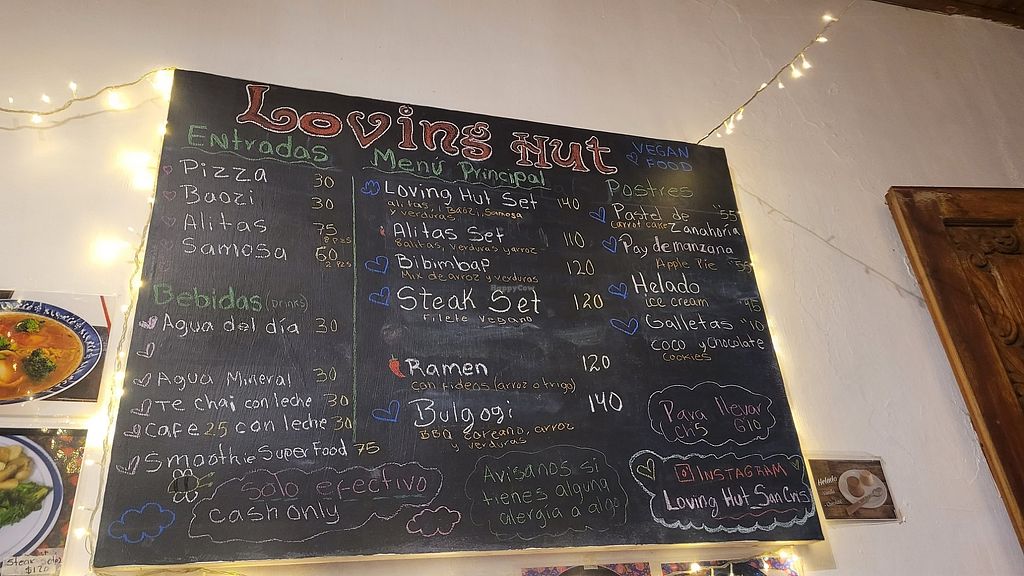 Loving Hut
VEGAN FOOD
Entradas
Pizza 30
Baozi 30
Alitas 75
8 pzs
Samosa 60
2 pzs
Bebidas (Drinks)
Agua del día 30
Agua Mineral 30
Te chai con leche 30
Cafe 25 con leche 30
Smoothie Super Food 75
Solo efectivo
cash only
Menú Principal
Loving Hut Set 140
alitas, Baozi, Samosa
y verduras
Alitas Set 110
8 alitas, verduras y arroz
Bibimbap 120
Mix de arroz y verduras
Steak Set 120
Filete vegano
Ramen 120
con fideos (arroz o trigo)
Bulgogi 140
BBQ coreano, arroz
y verduras
Avisanos si
tienes alguna
alergia a algo
Postres
Pastel de 55
carrot cake Zanahoria
Pay de manzana
Apple Pie 55
Helado
ice cream 45
Galletas 10
coco y chocolate
cookies
Para llevar
ch5 G10
INSTAGRAM
Loving Hut San Cris
HappyCow
Helado
Steak
$120